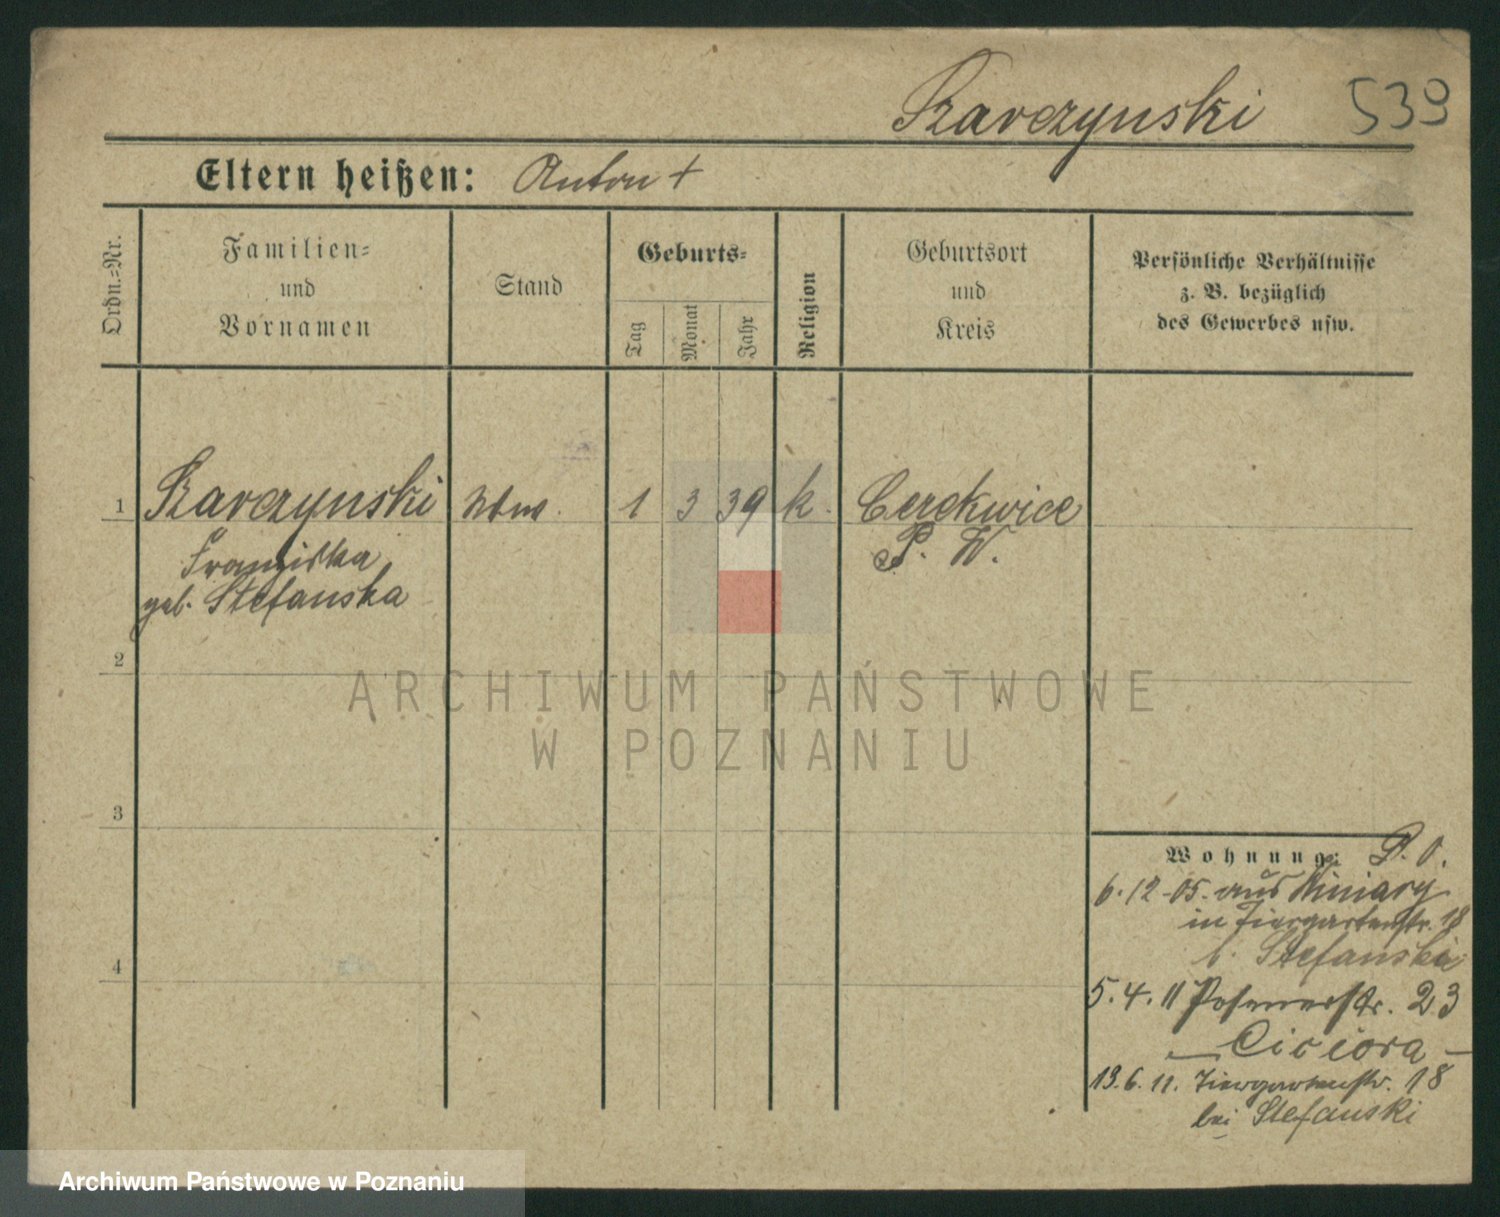 Szarczynski 539
Eltern heißen: Anton +
Ordn.=Nr.
Familien=
und
Vornamen
Stand
Geburts=
Tag
Monat
Jahr
Religion
Geburtsort
und
Kreis
Persönliche Verhältnisse
z. B. bezüglich
des Gewerbes usw.
1 Szarczynski Wwe. 1 3 39 k. Cerekwice
Franziska P. W.
geb. Stefanska
2
3
4
Wohnung: P. O.
6.12.05. aus Winiary
in Tiergartenstr. 18
b. Stefanski
5.4.11 Posenerstr. 23
— Ciciora —
13.6.11. Tiergartenstr. 18
bei Stefanski
ARCHIWUM PAŃSTWOWE
W POZNANIU
Archiwum Państwowe w Poznaniu